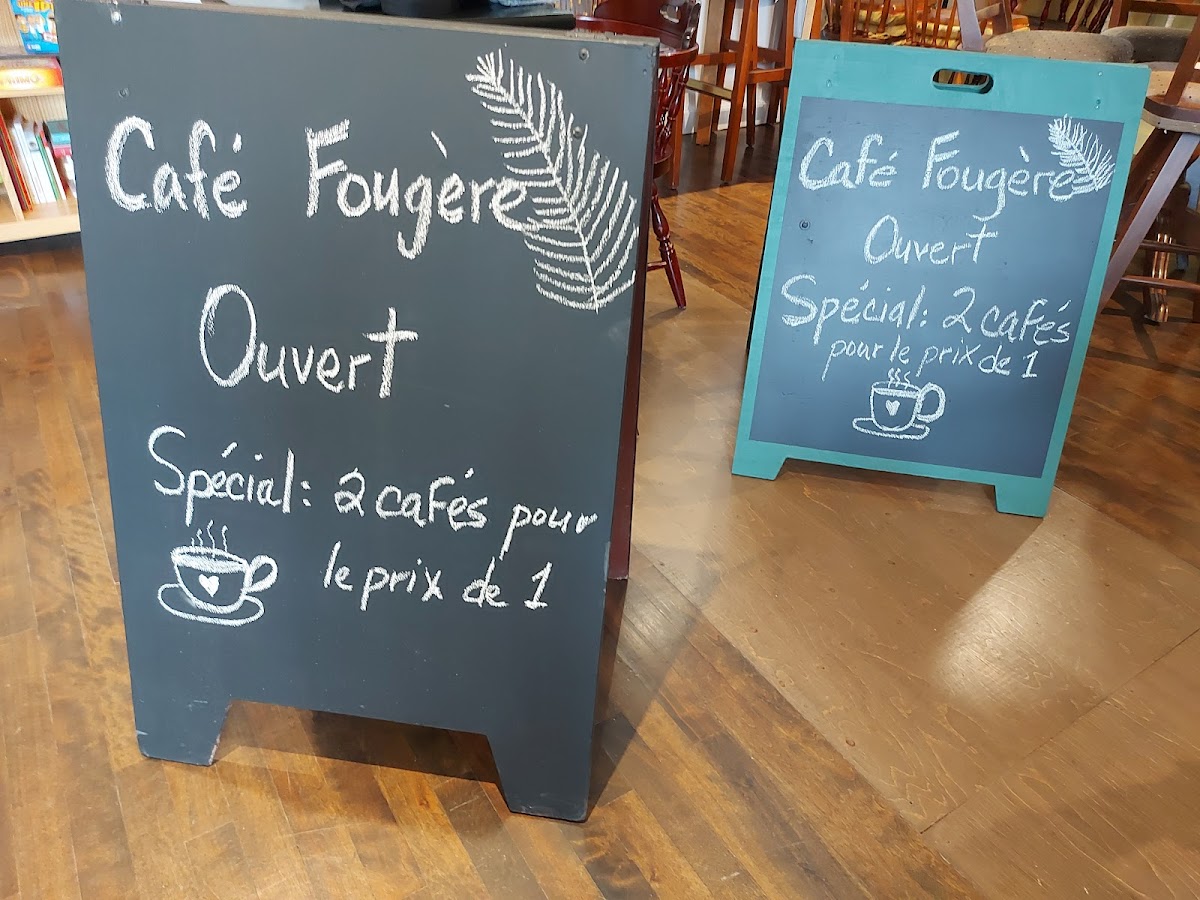 Café Fougère
Ouvert
Spécial: 2 cafés pour
le prix de 1
Café Fougère
Ouvert
Spécial: 2 cafés
pour le prix de 1